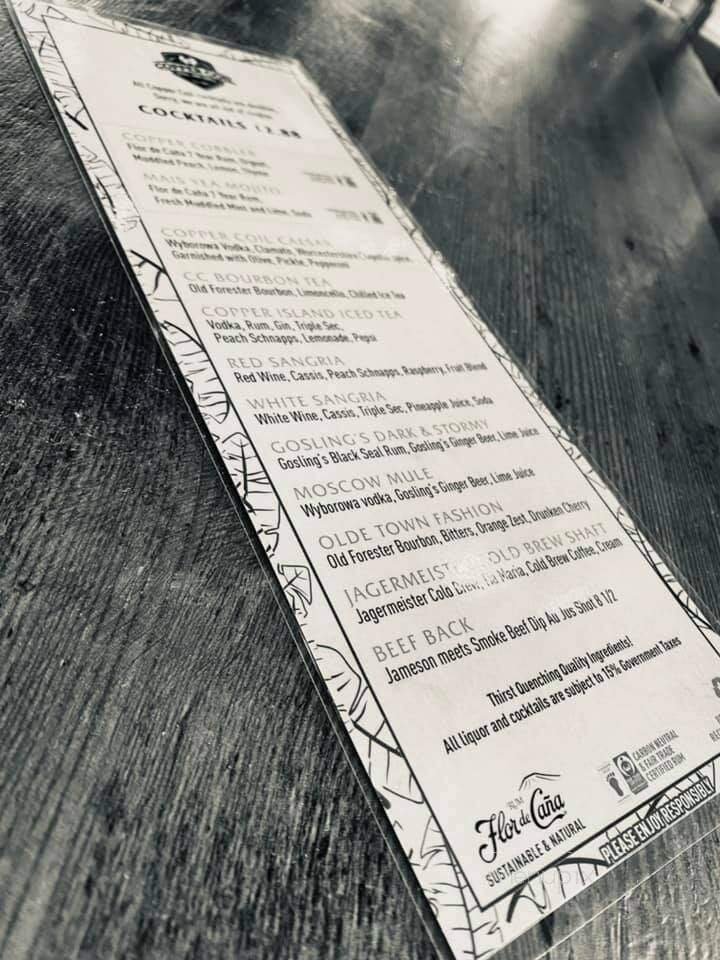 All Copper Coil cocktails are doubles.
Sorry, we are all out of singles.
COCKTAILS 12.88
COPPER COBBLER
Flor de Caña 7 Year Rum,
Muddled Peach, Lemon, Thyme
MAIS YEA MOJITO
Flor de Caña 7 Year Rum,
Fresh Muddled Mint and Lime, Soda
COPPER COIL CAESAR
Wyborowa Vodka, Clamato, Worcestershire,
Garnished with Olive, Pickle, Pepperoni
CC BOURBON TEA
Old Forester Bourbon, Limoncello, Chilled Ice Tea
COPPER ISLAND ICED TEA
Vodka, Rum, Gin, Triple Sec,
Peach Schnapps, Lemonade, Pepsi
RED SANGRIA
Red Wine, Cassis, Peach Schnapps, Raspberry, Fruit Blend
WHITE SANGRIA
White Wine, Cassis, Triple Sec, Pineapple Juice, Soda
GOSLING'S DARK & STORMY
Gosling's Black Seal Rum, Gosling's Ginger Beer, Lime Juice
MOSCOW MULE
Wyborowa vodka, Gosling's Ginger Beer, Lime Juice
OLDE TOWN FASHION
Old Forester Bourbon, Bitters, Orange Zest, Drunken Cherry
JAGERMEISTER COLD BREW SHAFT
Jagermeister Cold Brew, Tia Maria, Cold Brew Coffee, Cream
BEEF BACK
Jameson meets Smoke Beef Dip Au Jus Shot 8 1/2
Thirst Quenching Quality Ingredients!
All Liquor and cocktails are subject to 15% Government Taxes
RUM
Flor de Caña
SUSTAINABLE & NATURAL
CARBON NEUTRAL
& FAIR TRADE
CERTIFIED RUM
PLEASE ENJOY RESPONSIBLY